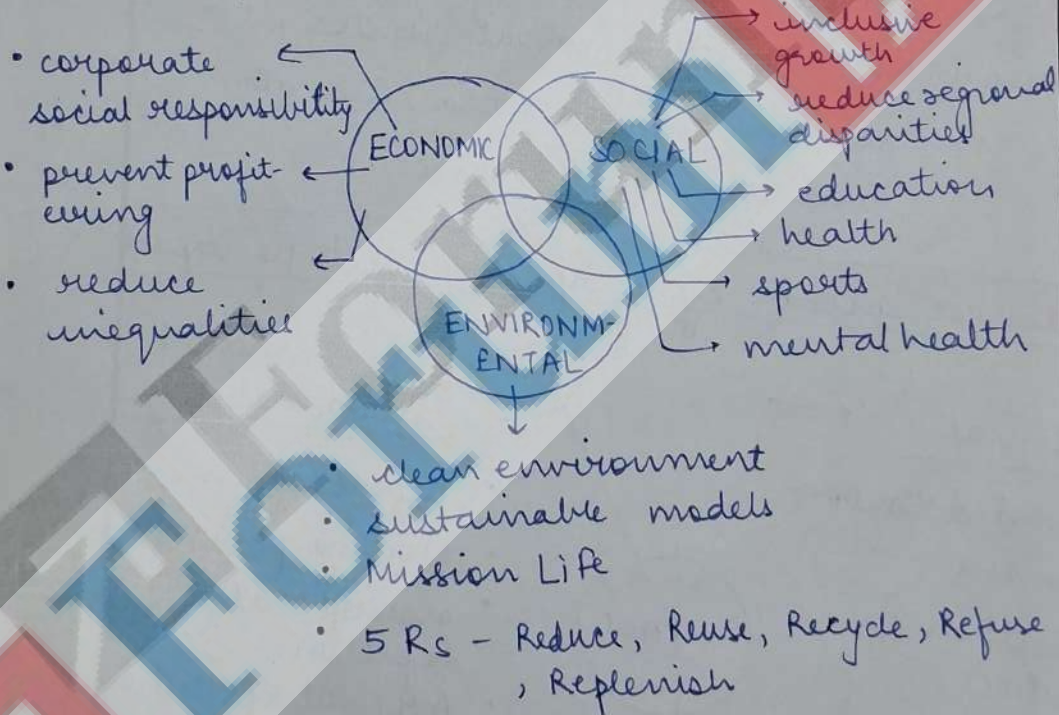 • corporate
social responsibility
• prevent profit-
eering
• reduce
inequalities
ECONOMIC
SOCIAL
ENVIRONM-
ENTAL
→ inclusive
growth
→ reduce regional
disparities
→ education
→ health
→ sports
→ mental health
• clean environment
• sustainable models
• Mission Life
• 5 Rs - Reduce, Reuse, Recycle, Refuse
, Replenish
Forum